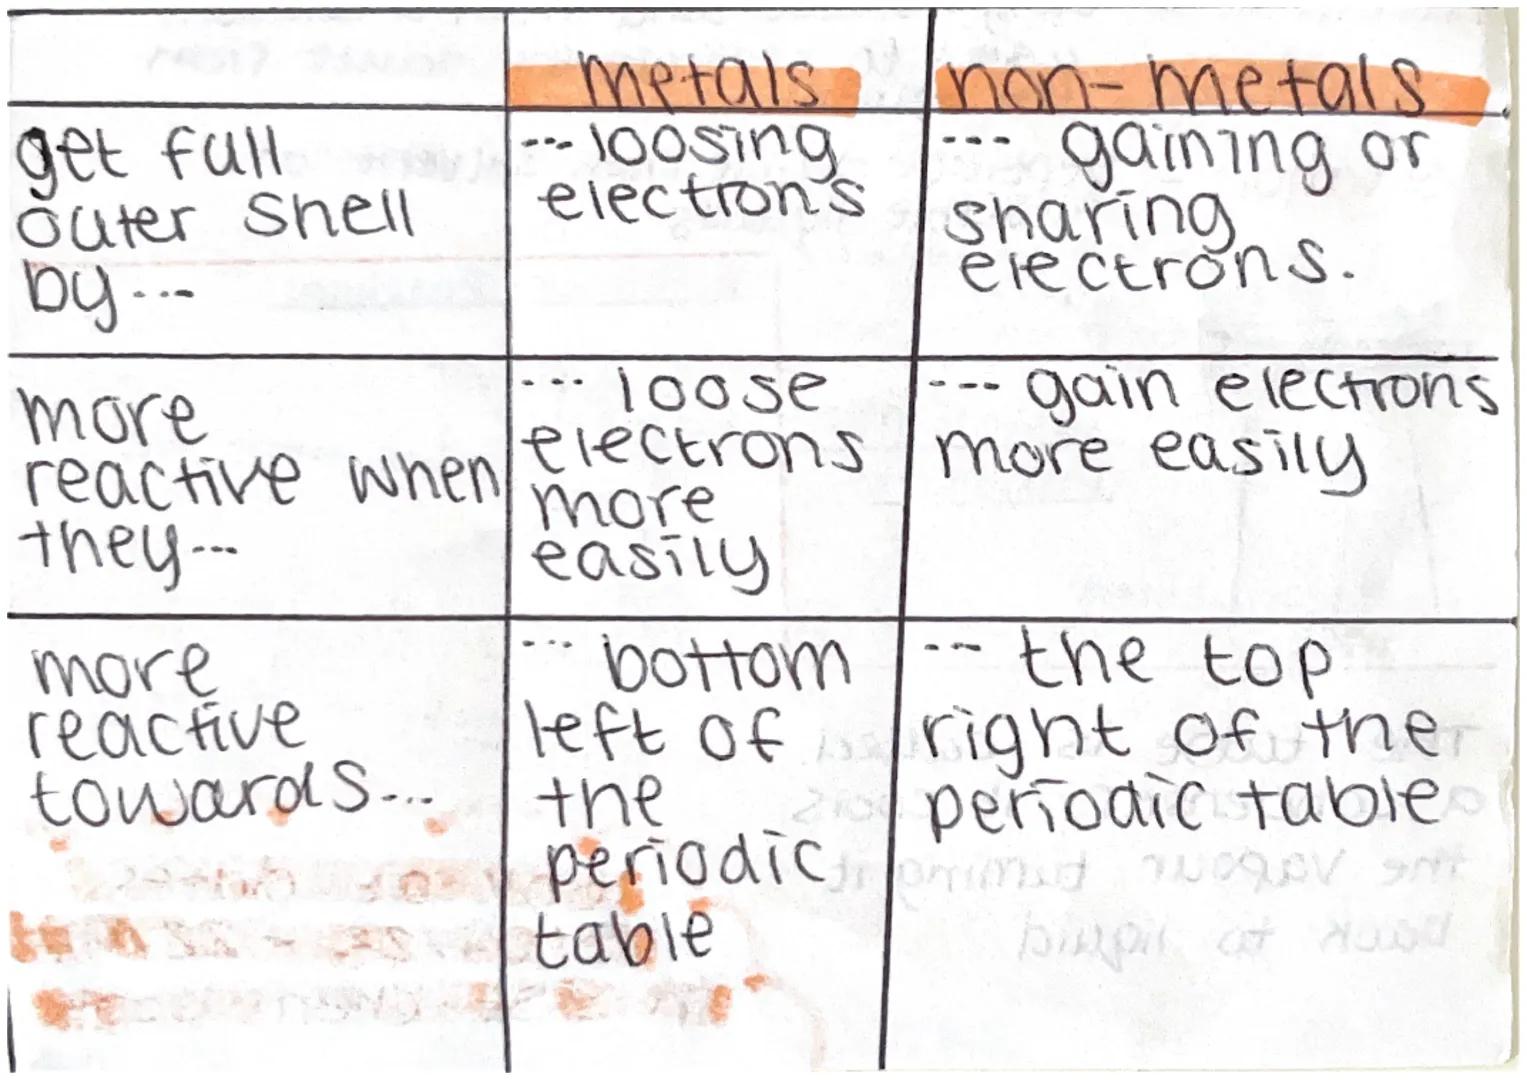 metals non-metals
get full --- loosing --- gaining or
outer shell electrons sharing
by--- electrons.
more --- loose --- gain electrons
reactive when electrons more easily
they--- more
easily
more --- bottom --- the top
reactive left of right of the
towards--- the periodic table
periodic
table